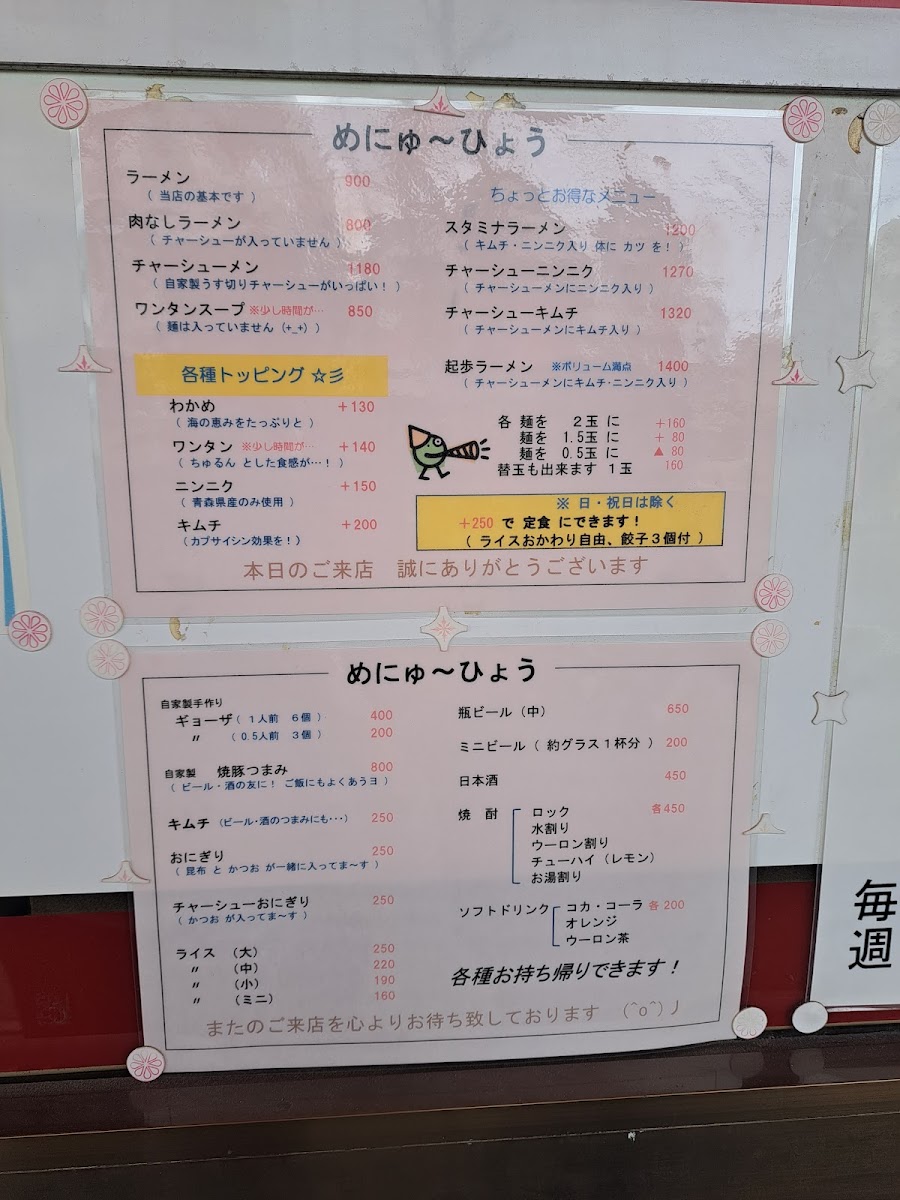 めにゅ～ひょう
ラーメン 900
（ 当店の基本です ）
肉なしラーメン 800
（ チャーシューが入っていません ）
チャーシューメン 1180
（ 自家製うす切りチャーシューがいっぱい！ ）
ワンタンスープ ※少し時間が… 850
（ 麺は入っていません (+_+) ）
各種トッピング ☆彡
わかめ ＋130
（ 海の恵みをたっぷりと ）
ワンタン ※少し時間が… ＋140
（ ちゅるん とした食感が…！ ）
ニンニク ＋150
（ 青森県産のみ使用 ）
キムチ ＋200
（カプサイシン効果を！）
ちょっとお得なメニュー
スタミナラーメン 1200
（ キムチ・ニンニク入り 体に カツ を！ ）
チャーシューニンニク 1270
（ チャーシューメンにニンニク入り ）
チャーシューキムチ 1320
（ チャーシューメンにキムチ入り ）
起歩ラーメン ※ボリューム満点 1400
（ チャーシューメンにキムチ・ニンニク入り ）
各 麺を ２玉 に ＋160
麺を 1.5玉 に ＋ 80
麺を 0.5玉 に ▲ 80
替玉も出来ます １玉 160
※ 日・祝日は除く
＋250 で 定食 にできます！
（ ライスおかわり自由、餃子３個付 ）
本日のご来店 誠にありがとうございます
めにゅ～ひょう
自家製手作り
ギョーザ（ １人前 ６個 ） 400
〃 （ 0.5人前 ３個 ） 200
自家製 焼豚つまみ 800
（ ビール・酒の友に！ ご飯にもよくあうヨ ）
キムチ （ビール・酒のつまみにも・・・） 250
おにぎり 250
（ 昆布 と かつお が一緒に入ってま～す ）
チャーシューおにぎり 250
（ かつお が入ってま～す ）
ライス （大） 250
〃 （中） 220
〃 （小） 190
〃 （ミニ） 160
瓶ビール（中） 650
ミニビール（ 約グラス１杯分 ） 200
日本酒 450
焼 酎 ロック 各450
水割り
ウーロン割り
チューハイ（レモン）
お湯割り
ソフトドリンク コカ・コーラ 各 200
オレンジ
ウーロン茶
各種お持ち帰りできます！
またのご来店を心よりお待ち致しております (^o^)丿
毎週